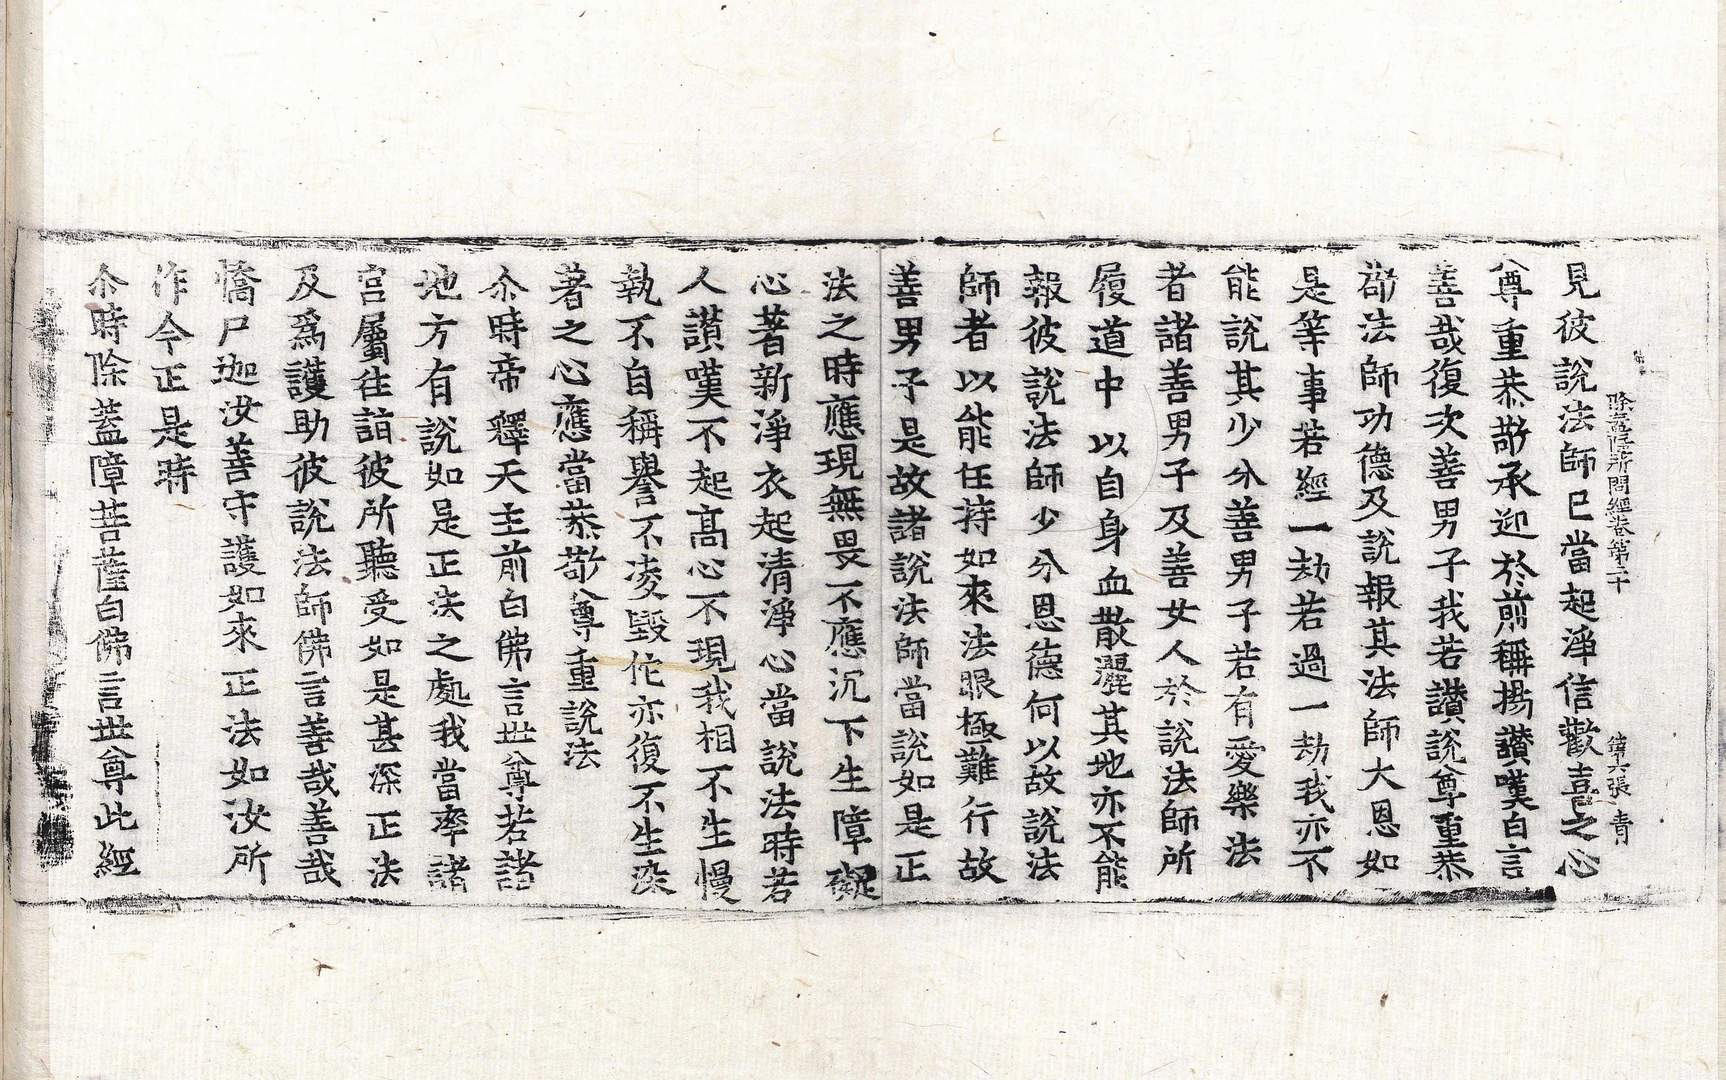 除蓋障所問經卷第二十 第六張 青
見彼說法師已當起淨信歡喜之心
尊重恭敬承迎於前稱揚讃嘆白言
善哉復次善男子我若讃說尊重恭
敬法師功德及說報其法師大恩如
是等事若經一劫若過一劫我亦不
能說其少分善男子若有愛樂法
者諸善男子及善女人於說法師所
履道中以自身血散灑其地亦不能
報彼說法師少分恩德何以故說法
師者以能任持如來法眼極難行故
善男子是故諸說法師當說如是正
法之時應現無畏不應沉下生障礙
心著新淨衣起清淨心當說法時若
人讃嘆不起高心不現我相不生慢
執不自稱譽不凌毀佗亦復不生染
著之心應當恭敬尊重說法
尒時帝釋天主前白佛言世尊若諸
地方有說如是正法之處我當率諸
宮屬往詣彼所聽受如是甚深正法
及爲護助彼說法師佛言善哉善哉
憍尸迦汝善守護如來正法如汝所
作今正是時
尒時除蓋障菩薩白佛言世尊此經